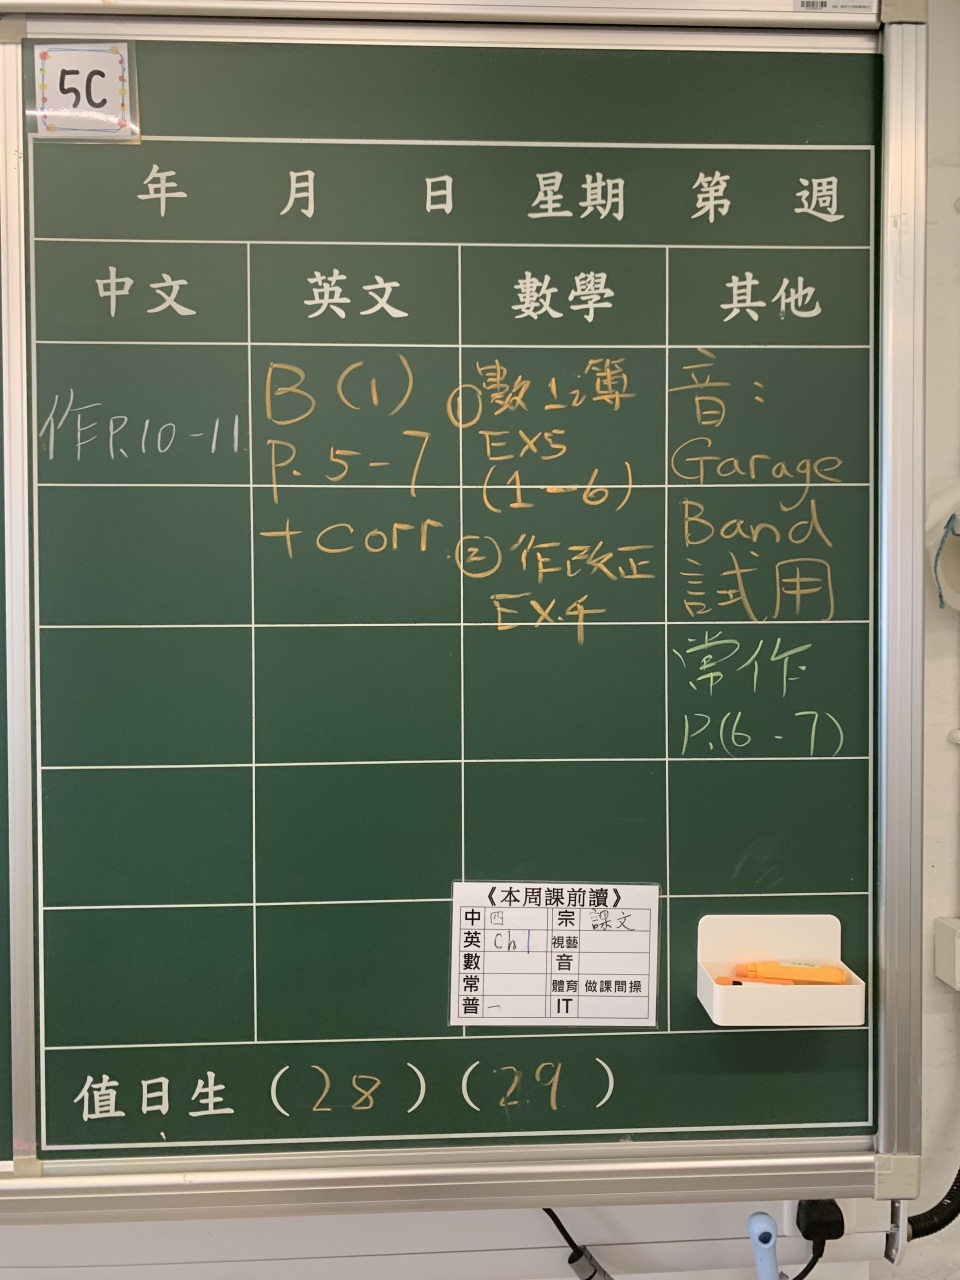 5C
年 月 日 星期 第 週
中文 英文 數學 其他
作P.10-11
B(1)
P.5-7
+corr.
① 數上簿
EX5
(1-6)
② 作改正
EX.4
音:
Garage
Band
試用
常作
P.(6-7)
《本周課前讀》
中 四 宗 課文
英 Ch1 視藝
數 音
常 體育 做課間操
普 一 IT
值日生 (28) (29)